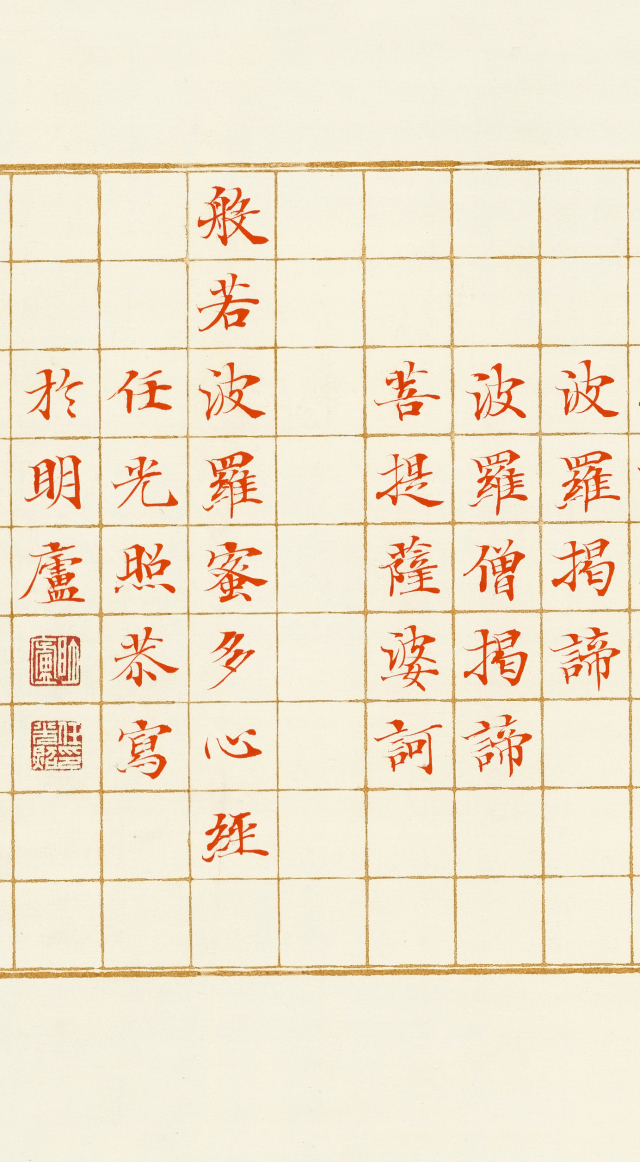 波羅揭諦
波羅僧揭諦
菩提薩婆訶
般若波羅蜜多心經
任光照恭寫
於明廬